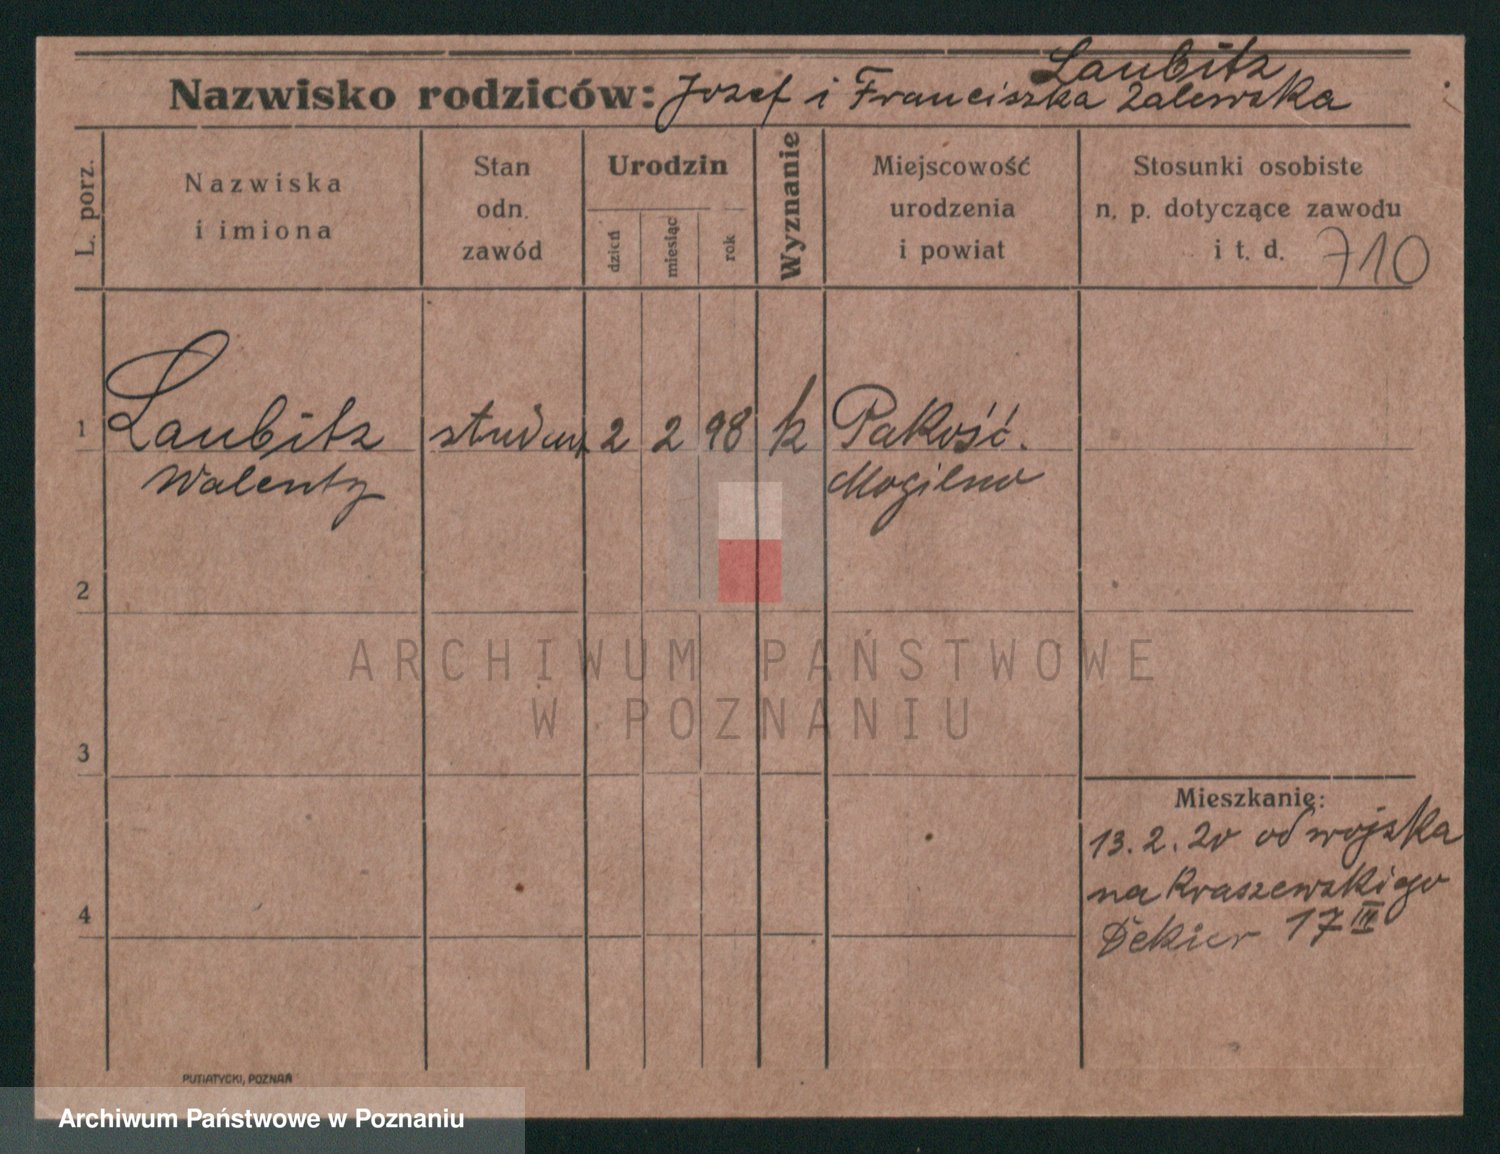 Laubitz
Nazwisko rodziców: Jozef i Franciszka Zalewska
L. porz.
Nazwiska
i imiona
Stan
odn.
zawód
Urodzin
dzień
miesiąc
rok
Wyznanie
Miejscowość
urodzenia
i powiat
Stosunki osobiste
n. p. dotyczące zawodu
i t. d.
710
1 Laubitz student 2 2 98 k Pakość.
Walenty Mogilno
2
3
4
Mieszkanie:
13.2.20 od wojska
na Kraszewskiego
Dekier 17 III
ARCHIWUM PAŃSTWOWE
W POZNANIU
PUTIATYCKI, POZNAŃ
Archiwum Państwowe w Poznaniu